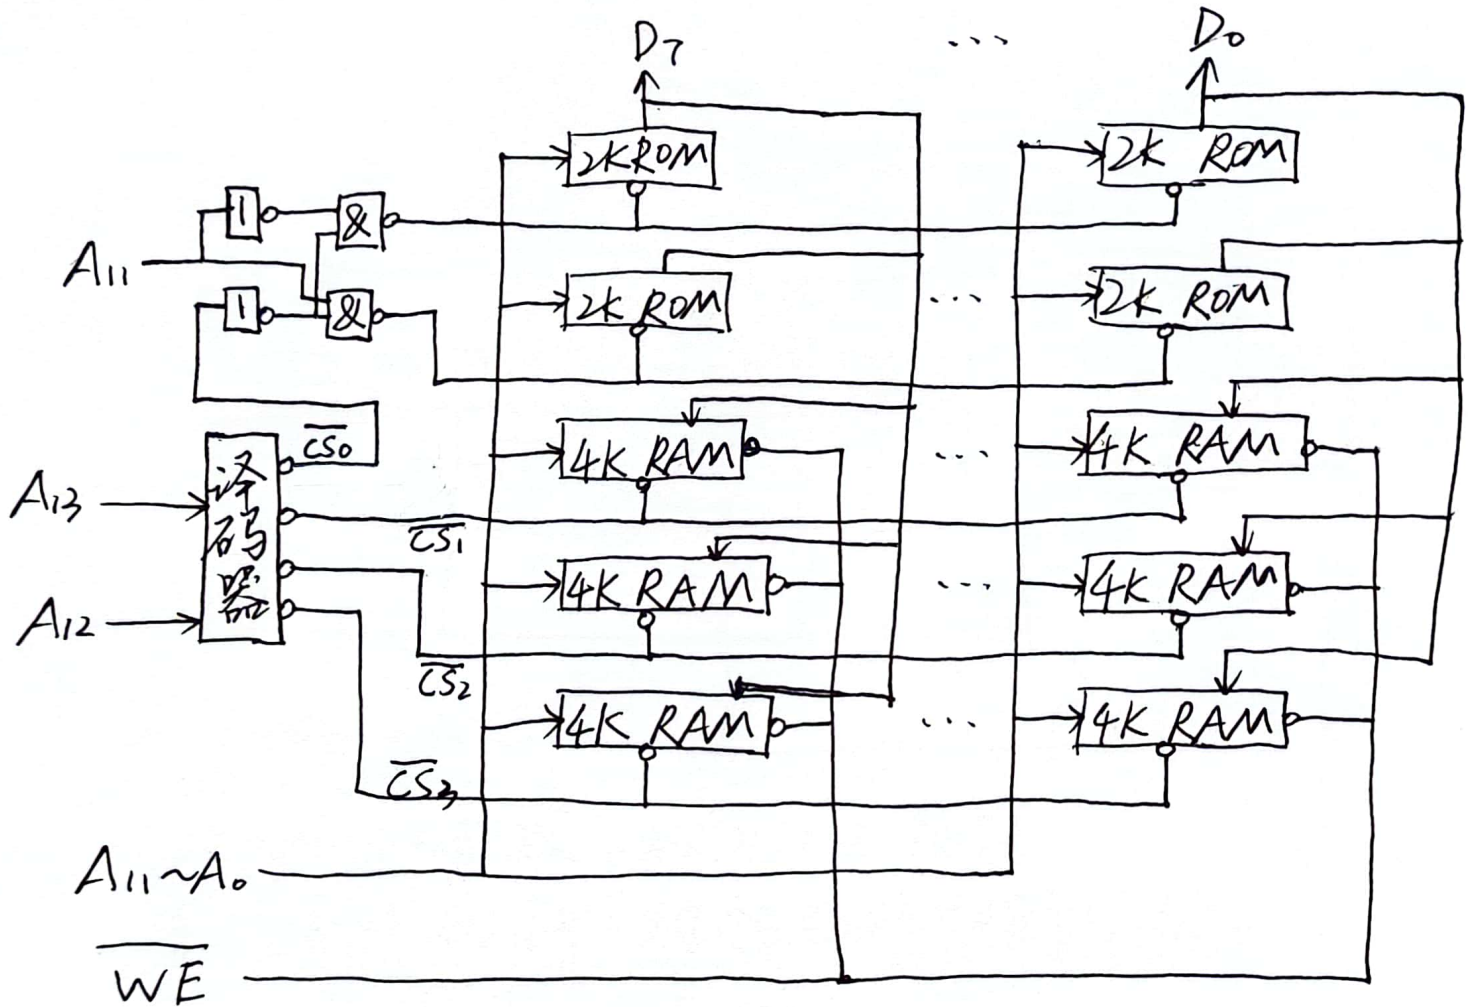 D₇ ... D₀
2K ROM 2K ROM
1 &
A₁₁
1 & 2K ROM ... 2K ROM
C̅S̅₀
4K RAM ... 4K RAM
A₁₃ 译码器
C̅S̅₁
4K RAM ... 4K RAM
A₁₂
C̅S̅₂
4K RAM ... 4K RAM
C̅S̅₃
A₁₁~A₀
W̅E̅